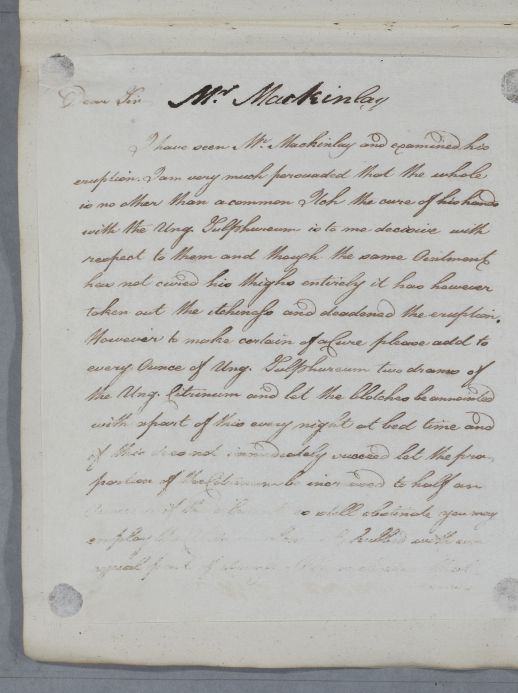 Dear Sir Mr. Mackinlay
I have seen Mr. Mackinlay and examined his
eruption. I am very much persuaded that the whole
is no other than a common Itch the cure of his hands
with the Ung. Sulphureum is to me decisive with
respect to them and though the same Ointment
has not cured his thighs entirely it has however
taken out the itchiness and deadened the eruption.
However to make certain of a Cure please add to
every Ounce of Ung. Sulphureum two drams of
the Ung. Citrinum and let the blotches be annointed
with a part of this every night at bed time and
if this does not immediately succeed let the pro
portion of the Citrinum be increased to half an
is still obstinate you may
employ the rubbed with an
equal part of